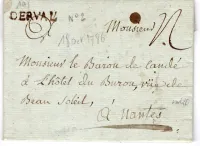 DERVAL
N° 2
Monsieur
Monsieur le Baron de Candé
à L'hôtel du Buron, rue de
Beau Soleil,
à Nantes